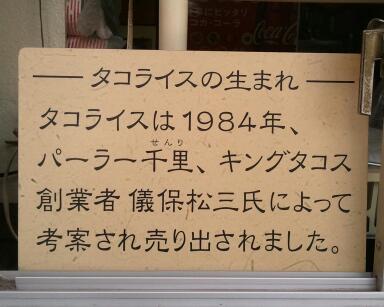 コカ・コーラ
Coca-Cola
タコライスの生まれ
タコライスは1984年、
パーラー千里、キングタコス
せんり
創業者 儀保松三氏によって
考案され売り出されました。